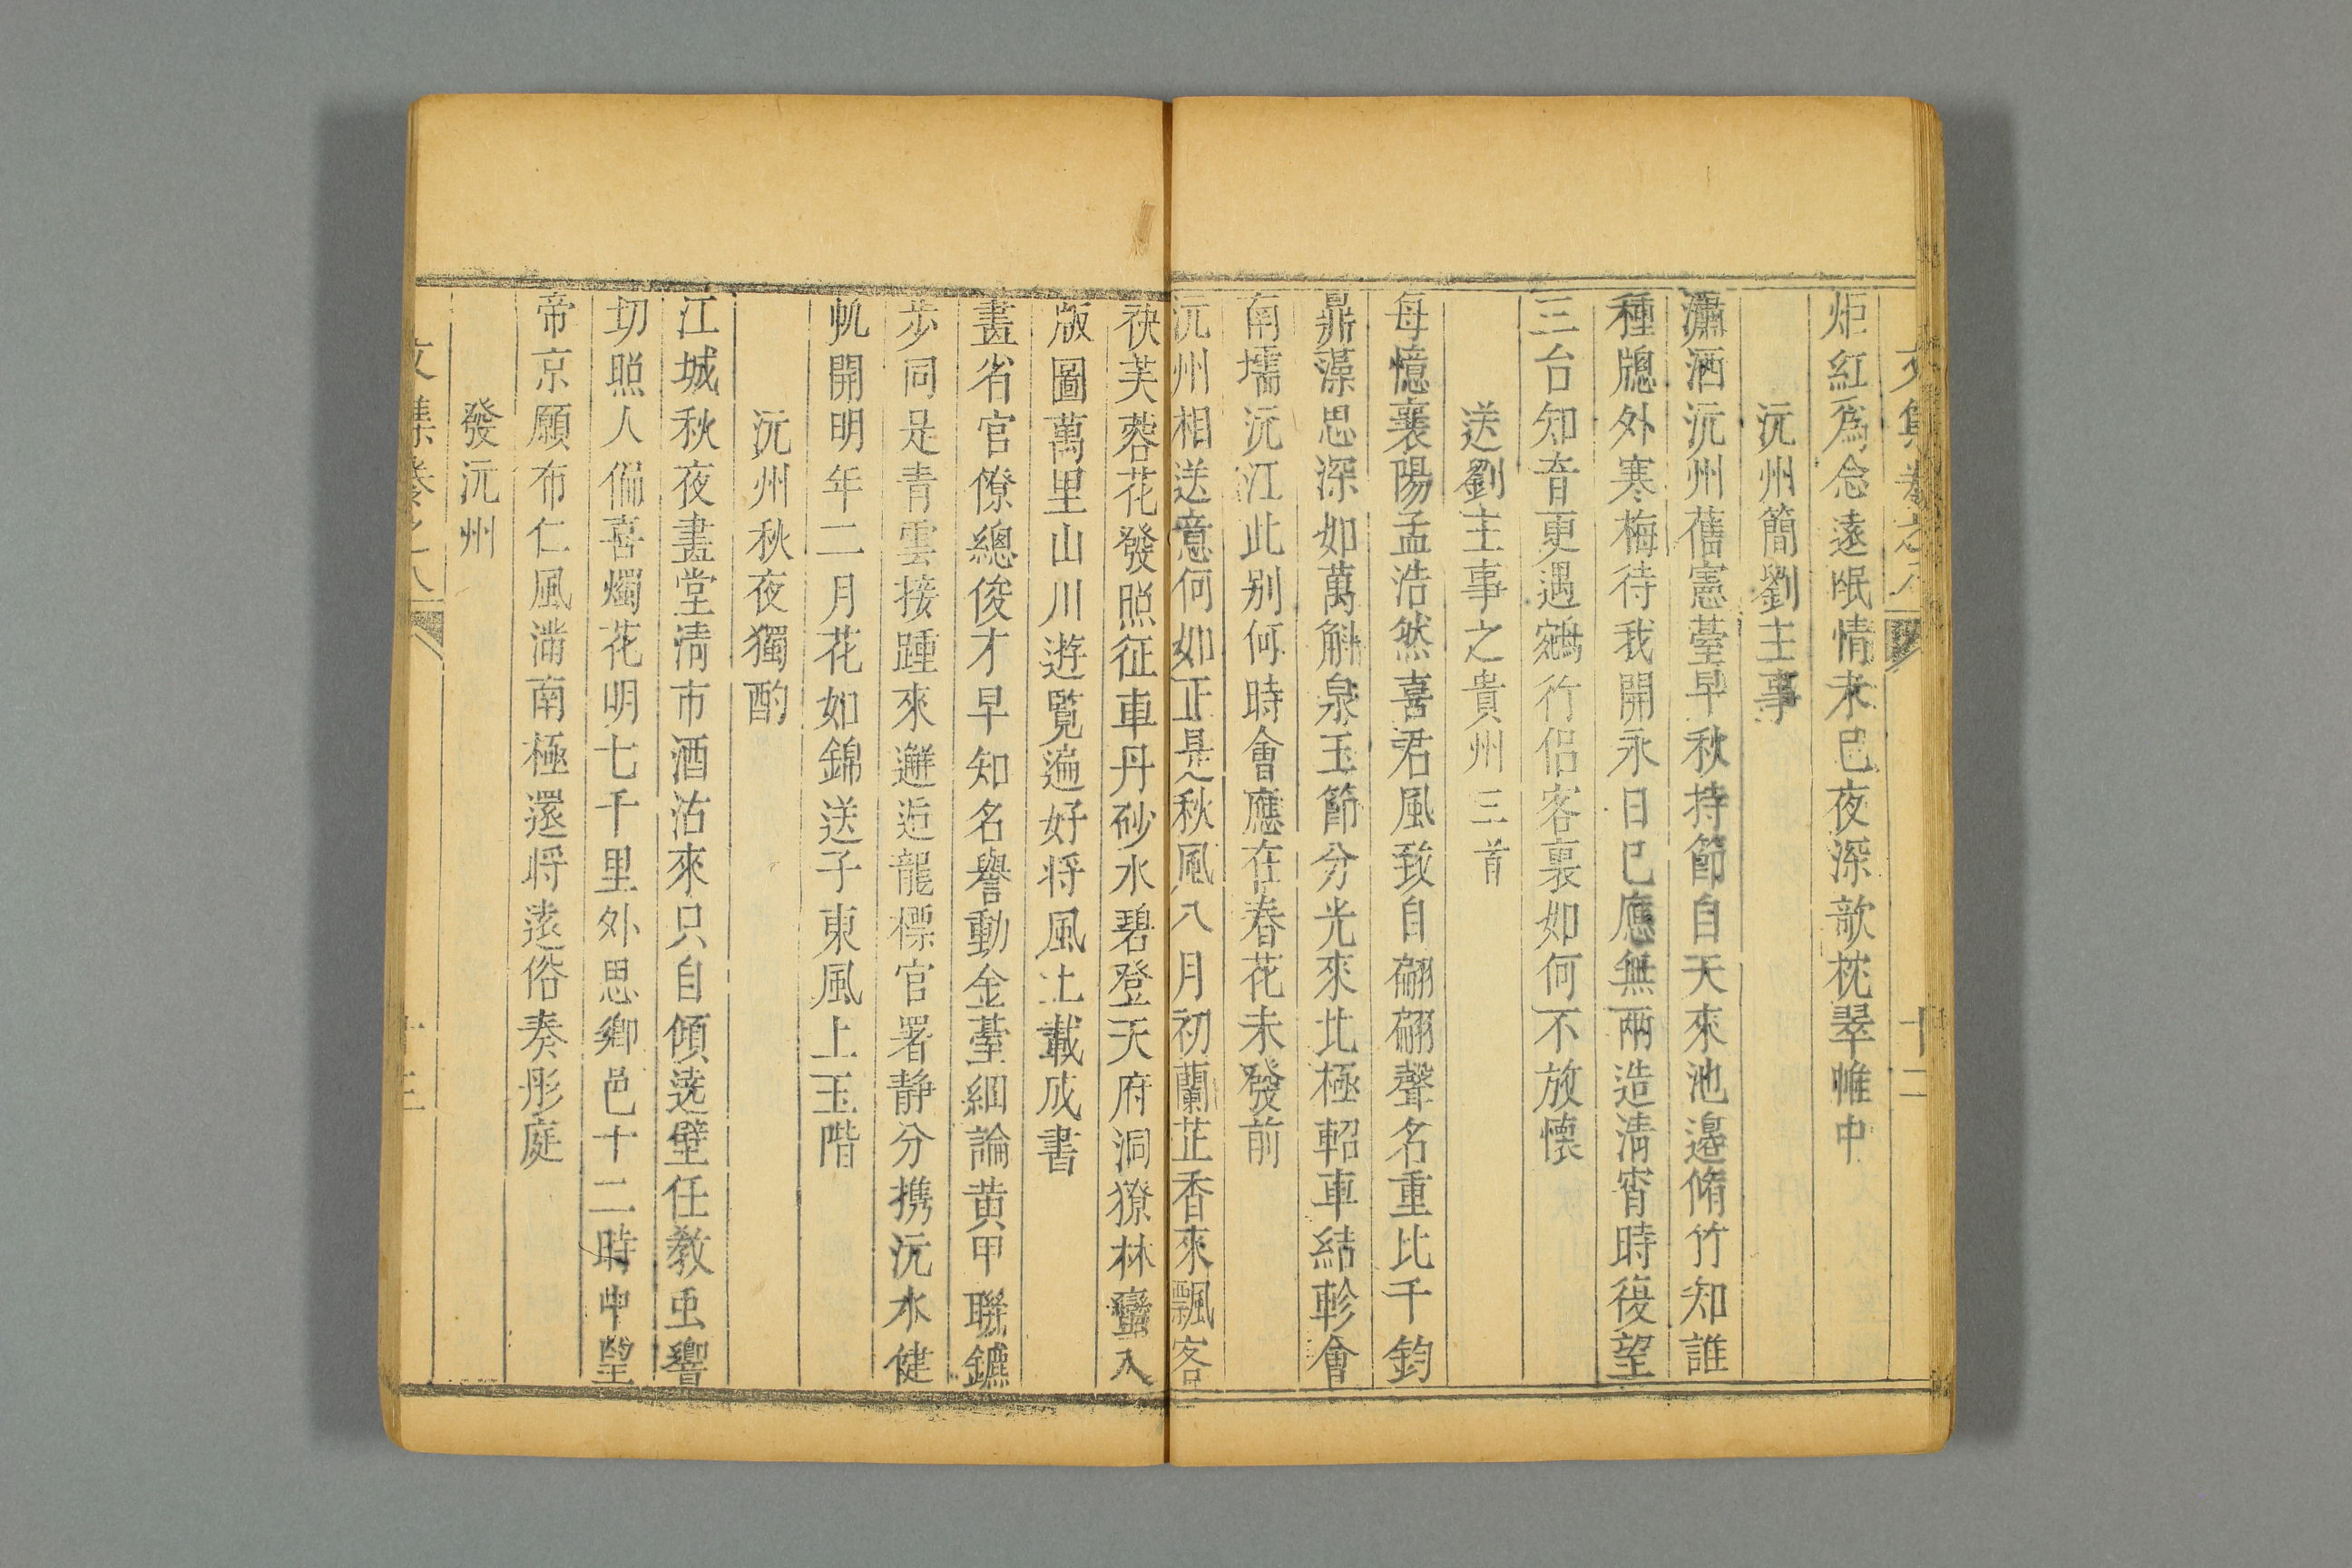 文集卷之八
十二
炬紅爲念遠氓情未已夜深欹枕翠帷中
沅州簡劉主事
瀟洒沅州舊憲臺早秋持節自天來池邊脩竹知誰
種牕外寒梅待我開永日已應無兩造清宵時復望
三台知音更遇鵷行侶客裏如何不放懷
送劉主事之貴州三首
每憶襄陽孟浩然喜君風致自翩翩聲名重比千鈞
鼎藻思深如萬斛泉玉節分光來北極軺車結軫會
南壖沅江此別何時會應在春花未發前
沅州相送意何如正是秋風八月初蘭芷香來飄客
袂芙蓉花發照征車丹砂水碧登天府洞獠林蠻入
版圖萬里山川遊覧遍好将風土載成書
畫省官僚總俊才早知名譽動金臺細論黄甲聯鑣
步同是青雲接踵來邂逅龍標官署静分携沅水健
帆開明年二月花如錦送子東風上玉階
沅州秋夜獨酌
江城秋夜畫堂清市酒沽來只自傾遶壁任教虫響
切照人偏喜燭花明七千里外思鄉邑十二時中望
帝京願布仁風濟南極還将遠俗奏彤庭
發沅州
文集卷之八
十三